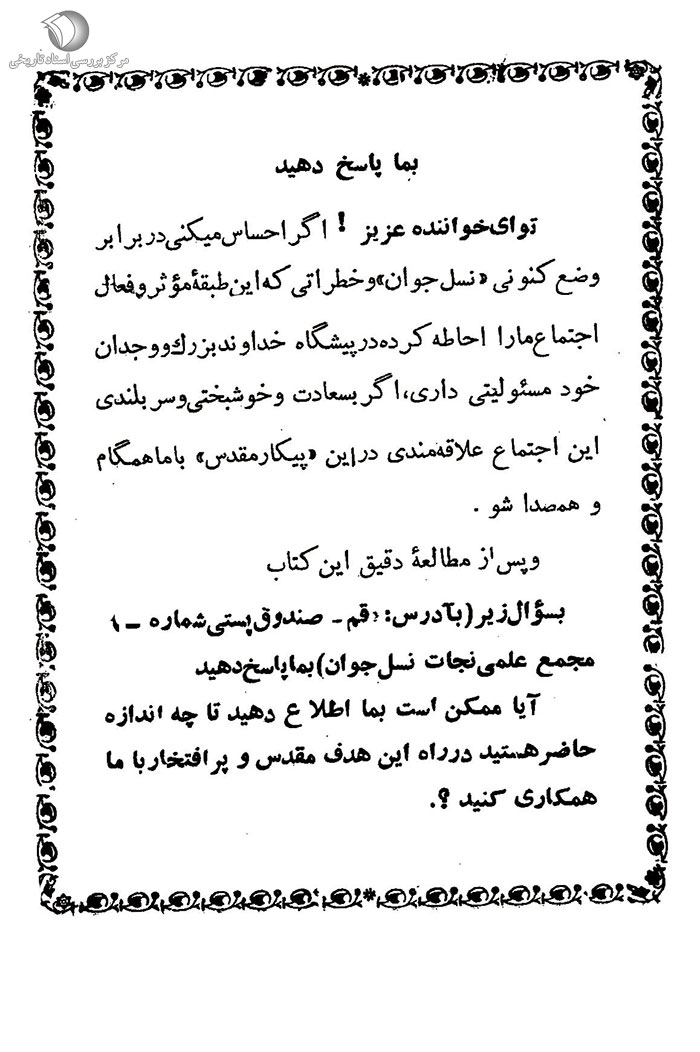 مرکز بررسی اسناد تاریخی
بما پاسخ دهید
توای خواننده عزیز ! اگر احساس میکنی در برابر
وضع کنونی «نسل جوان» و خطراتی که این طبقهٔ مؤثر و فعال
اجتماع مارا احاطه کرده در پیشگاه خداوند بزرك و وجدان
خود مسئولیتی داری، اگر بسعادت و خوشبختی و سر بلندی
این اجتماع علاقه‌مندی در این «پیکار مقدس» با ما همگام
و همصدا شو .
و پس از مطالعهٔ دقیق این کتاب
بسؤال زیر (بآدرس: قم - صندوق پستی شماره - ۱
مجمع علمی نجات نسل جوان) بما پاسخ دهید
آیا ممکن است بما اطلاع دهید تا چه اندازه
حاضر هستید در راه این هدف مقدس و پر افتخار با ما
همکاری کنید ؟.